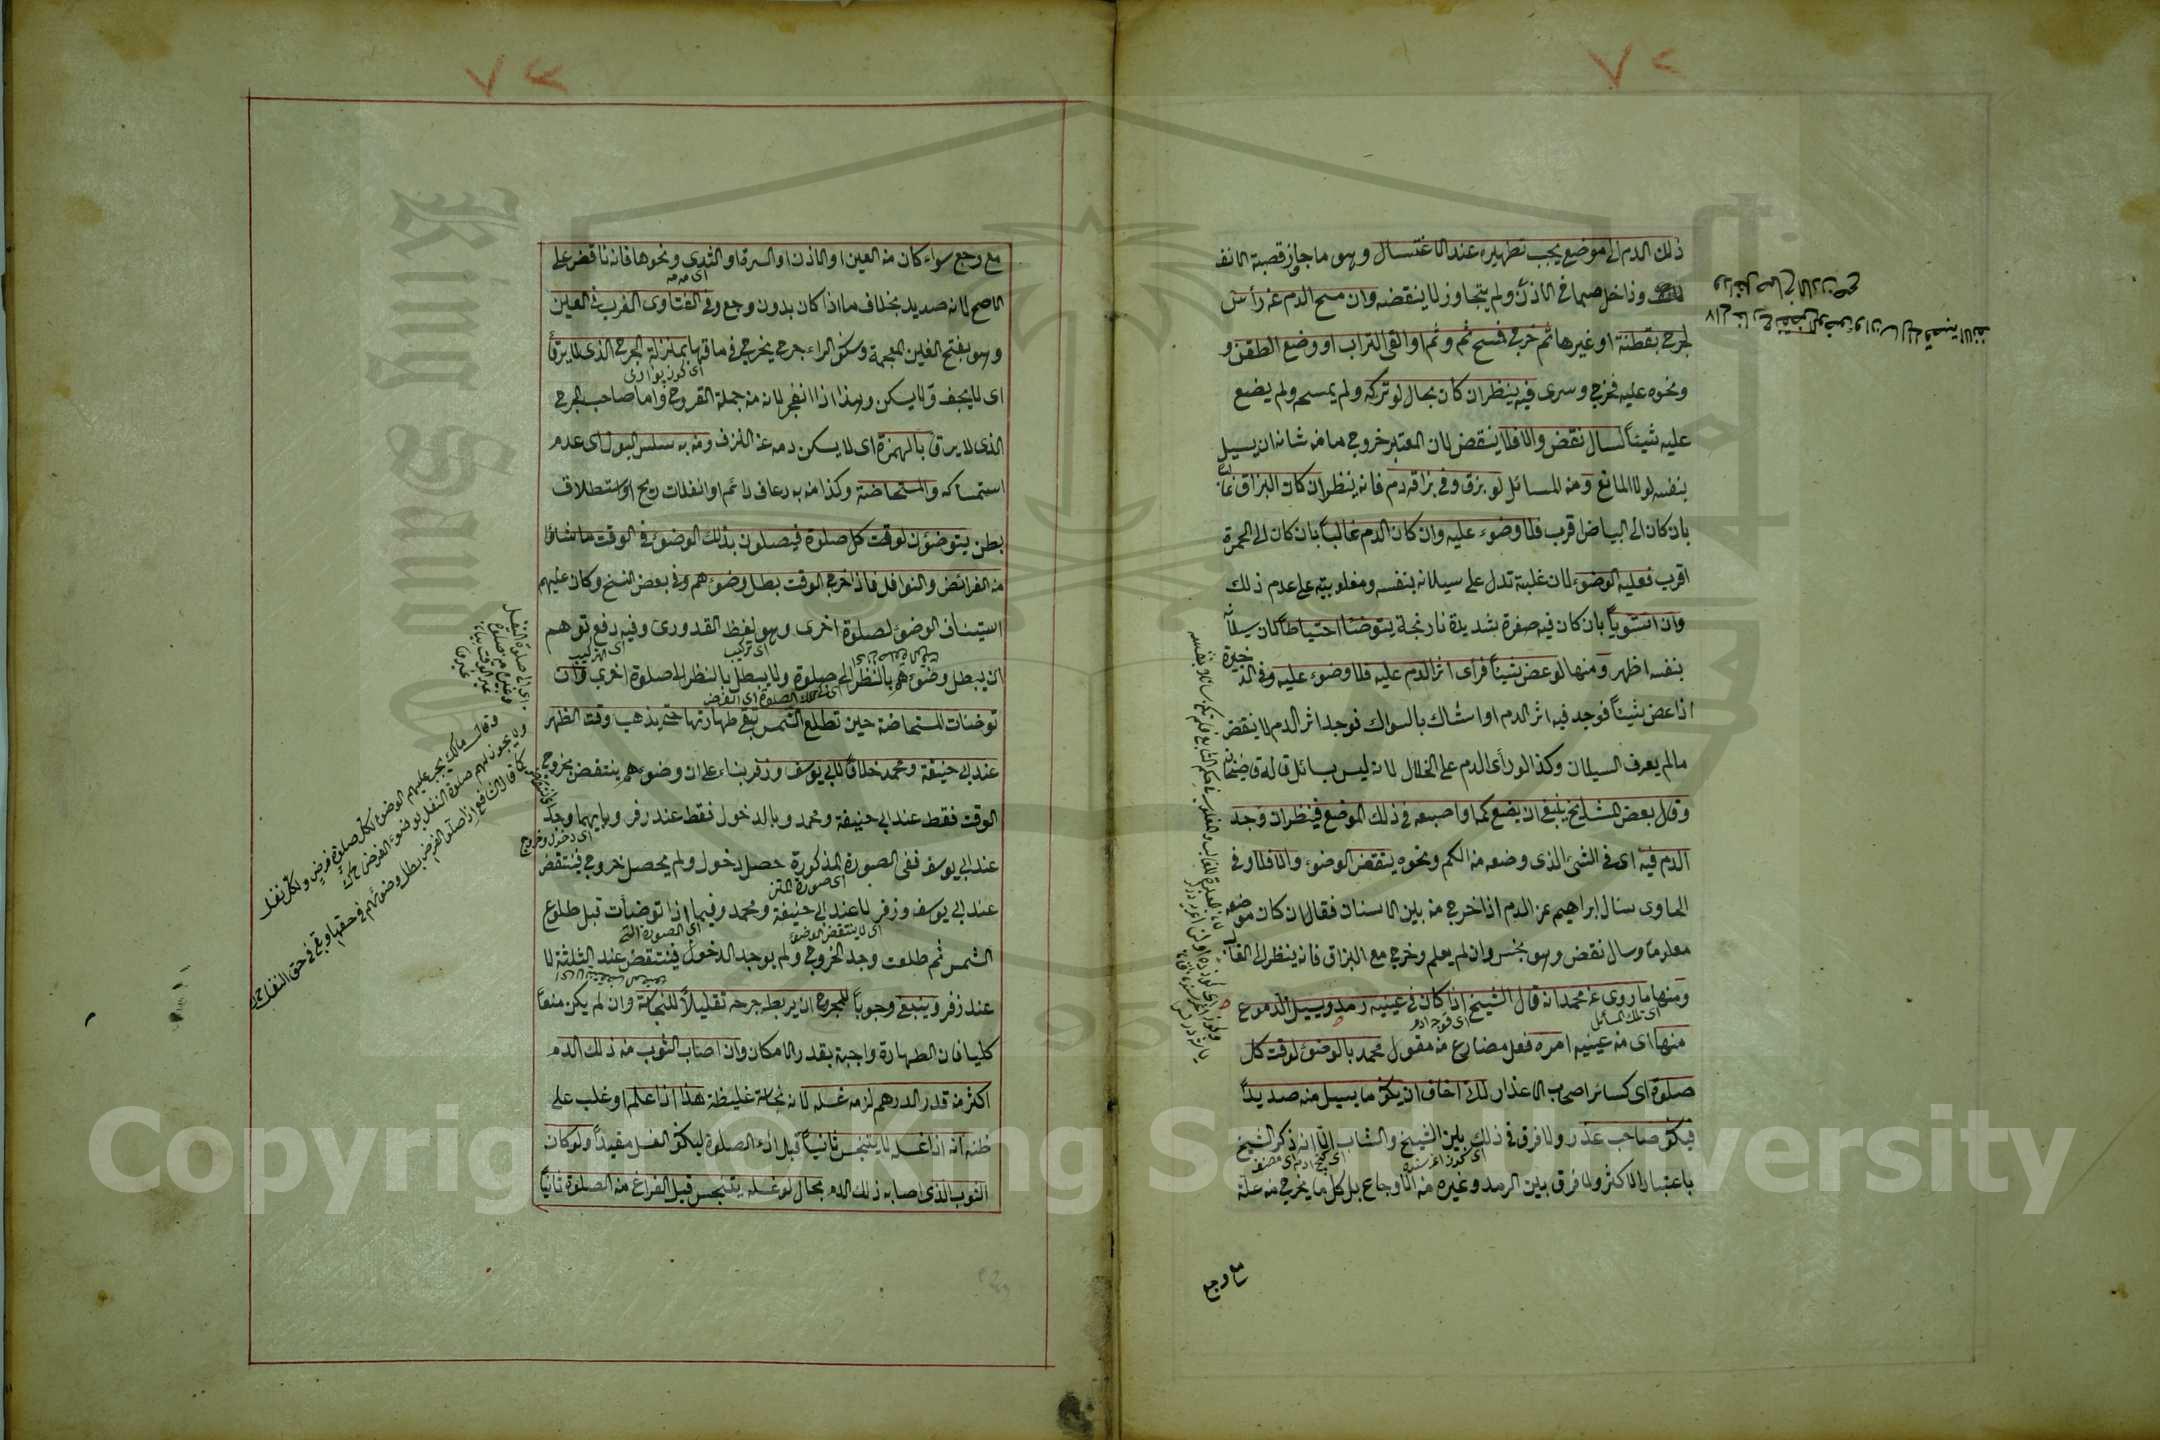 ٧٢
ذلك الدم الى موضع يجب تطهيره عند الاغتسال وهو ما جاوز قصبة الانف
وداخل صماخ الاذن ولم يتجاوز لا ينقضه وان مسح الدم عن رأس
الجرح بقطنة او غيرها ثم خرج فمسح ثم وثم او القى التراب او وضع القطن و
ونحوه عليه فخرج وسرى فيه ينظر ان كان بحال لو تركه ولم يمسحه ولم يضع
عليه شيئاً لسال نقض والا فلا ينقض لان المعتبر خروج ما من شانه ان يسيل
بنفسه لولا المانع ومنه المسائل لو بزق وفى بزاقه دم فانه ينظر ان كان البزاق غالباً
بان كان الى البياض اقرب فلا وضوء عليه وان كان الدم غالباً بان كان الى الحمرة
اقرب فعليه الوضوء لان غلبته تدل على سيلانه بنفسه ومغلوبيته على عدم ذلك
وان استويا بان كان فيه صفرة شديدة نارنجية يتوضئا احتياطاً لان سيلانه
بنفسه اظهر ومنها لو عض شيئاً فرأى اثر الدم عليه فلا وضوء عليه وفى الذخيرة
اذا عض شيئاً فوجد فيه اثر الدم او استاك بالسواك فوجد اثر الدم لا ينقض
ما لم يعرف السيلان وكذا لو رأى الدم على الخلال لانه ليس بسائل قاله قاضيخان
وقال بعض المشايخ ينبغى ان يضع كمه او اصبعه فى ذلك الموضع فينظر ان وجد
الدم فيه اى فى الشئ الذى وضعه من الكم ونحوه ينقض الوضوء والا فلا وفى
الحاوى سئال ابراهيم عن الدم اذا خرج من بين الاسنان فقال ان كان موضعه
معلوماً وسال نقض وهو نجس وان لم يعلم وخرج مع البزاق فانه ينظر الى الغالب
ومنها ما روى عن محمد انه قال الشيخ اذا كان فى عينيه رمد ويسيل الدموع
اى تلك المسائل
منها اى من عينيه امره فعل مضارع من مقول محمد بالوضوء لوقت كل
صلوة اى كسائر اصحاب الاعذار لانى اخاف ان يكون ما يسيل منه صديداً
فيكون صاحب عذر ولا فرق فى ذلك بين الشيخ والشاب الا انه ذكر الشيخ
باعتبار الاكثر ولا فرق بين الرمد وغيره من الاوجاع بل كل ما يخرج من علة
مع وجع
٧٣
مع وجع سواء كان من العين او الاذن او السرة او الثدى ونحوها فانه ناقض على
الاصح لانه صديد بخلاف ما اذا كان بدون وجع وفى الفتاوى الغرب فى العين
وهو بفتح الغين المعجمة وسكون الراء جرح يخرج فى ماقها بمنزلة الجرح الذى لا يرقأ
اى لا يجف ولا يسكن وهذا اذا انفجر لانه من جملة القروح واما صاحب الجرح
الذى لا يرقأ بالهمزة اى لا يسكن دمه عن النزف ومن به سلس البول اى عدم
استمساكه والمستحاضة وكذا من به رعاف دائم او انفلات ريح او استطلاق
بطن يتوضؤن لوقت كل صلوة فيصلون بذلك الوضوء فى الوقت ما شاؤا
من الفرائض والنوافل فاذا خرج الوقت بطل وضوءهم وفى بعض النسخ وكان عليهم
استيناف الوضوء لصلوة اخرى وهو لفظ القدورى وفيه دفع توهم
ان يبطل وضوءهم بالنظر الى صلوة ولا يبطل بالنظر الى صلوة اخرى وان
توضات المستحاضة حين تطلع الشمس تبقى طهارتها حتى يذهب وقت الظهر
عند ابى حنيفة ومحمد خلافاً لابى يوسف وزفر بناء على ان وضوءهم ينتقض بخروج
الوقت فقط عند ابى حنيفة ومحمد وبالدخول فقط عند زفر وبايهما وجد
اى دخول وخروج
عند ابى يوسف ففى الصورة المذكورة حصل دخول ولم يحصل خروج فينتقض
اى صورة المتن
عند ابى يوسف وزفر لا عند ابى حنيفة ومحمد وفيما اذا توضأت قبل طلوع
اى لا ينتقض الوضوء
الشمس ثم طلعت وجد الخروج ولم يوجد الدخول فينتقض عند الثلثة لا
عند زفر وينبغى وجوباً للمجروح ان يربط جرحه تقليلاً للنجاسة وان لم يكن منعاً
كلياً فان الطهارة واجبة بقدر الامكان وان اصاب الثوب من ذلك الدم
اكثر من قدر الدرهم لزمه غسله لانه نجاسة غليظة هذا اذا علم او غلب على
ظنه انه اذا غسله لا يتنجس ثانياً قبل اداء الصلوة ليكون الغسل مقيداً ولو كان
الثوب الذى اصابه ذلك الدم بحال لو غسله يتنجس قبل الفراغ من الصلوة ثانياً
وقال مالك يجب عليهم الوضوء لكل صلوة فرض ولكل نفل
King Saud University
1957
Copyright © King Saud University